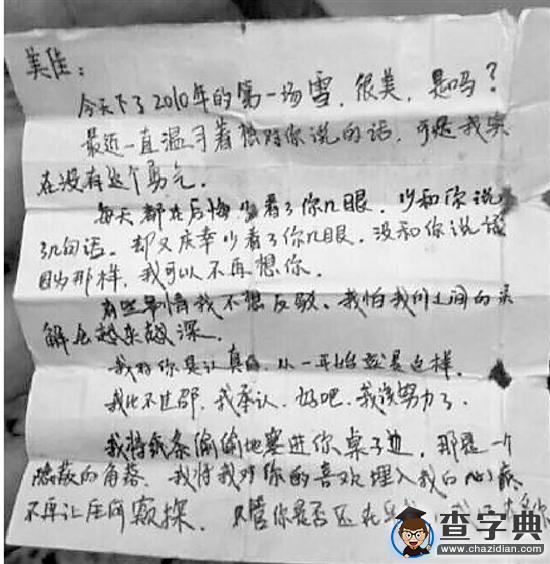 美佳：
今天下了2010年的第一场雪，很美，是吗？
最近一直温习着想对你说的话，可是我实
在没有这个勇气。
每天都在后悔少看了你几眼，少和你说
了几句话。却又庆幸少看了你几眼，没和你说话
因为那样，我可以不再想你。
有些事情我不想反驳，我怕我们之间的误
解会越来越深。
我对你是认真的，从一开始就是这样。
我比不过邵，我承认，好吧，我该努力了。
我将纸条偷偷地塞进你桌子边，那是一个
隐蔽的角落，我将我对你的喜欢埋入我的心
不再让任何窥探。只管你是否还在
查字典
www.chazidian.com